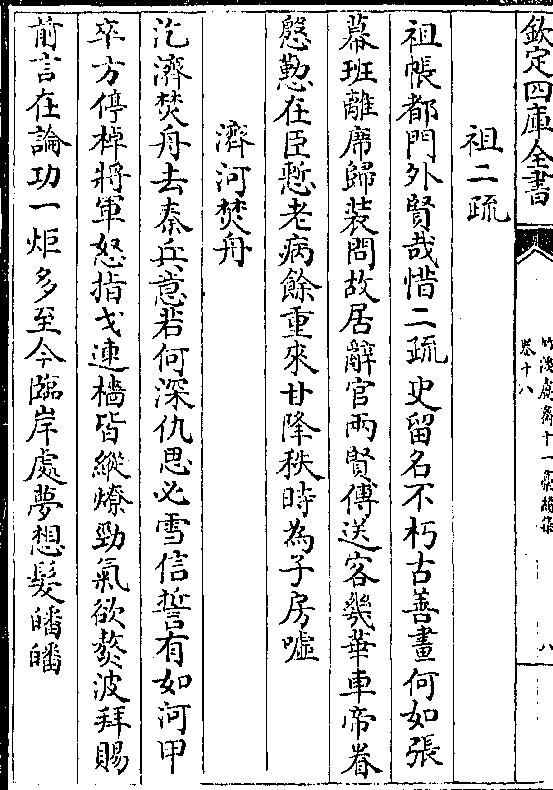 欽定四庫全書
卷十八
八
祖二疏
祖帳都門外賢哉惜二疏史留名不朽古善畫何如張
幕班離席歸装問故居辭官兩賢傅送客幾華車帝眷
慇懃在臣慙老病餘重來甘降秩時為子房嘘
濟河焚舟
汔濟焚舟去秦兵意若何深仇思必雪信誓有如河甲
卒方停棹將軍怒指戈連檣皆縱燎勁氣欲熬波拜賜
前言在論功一炬多至今臨岸處夢想髮皤皤